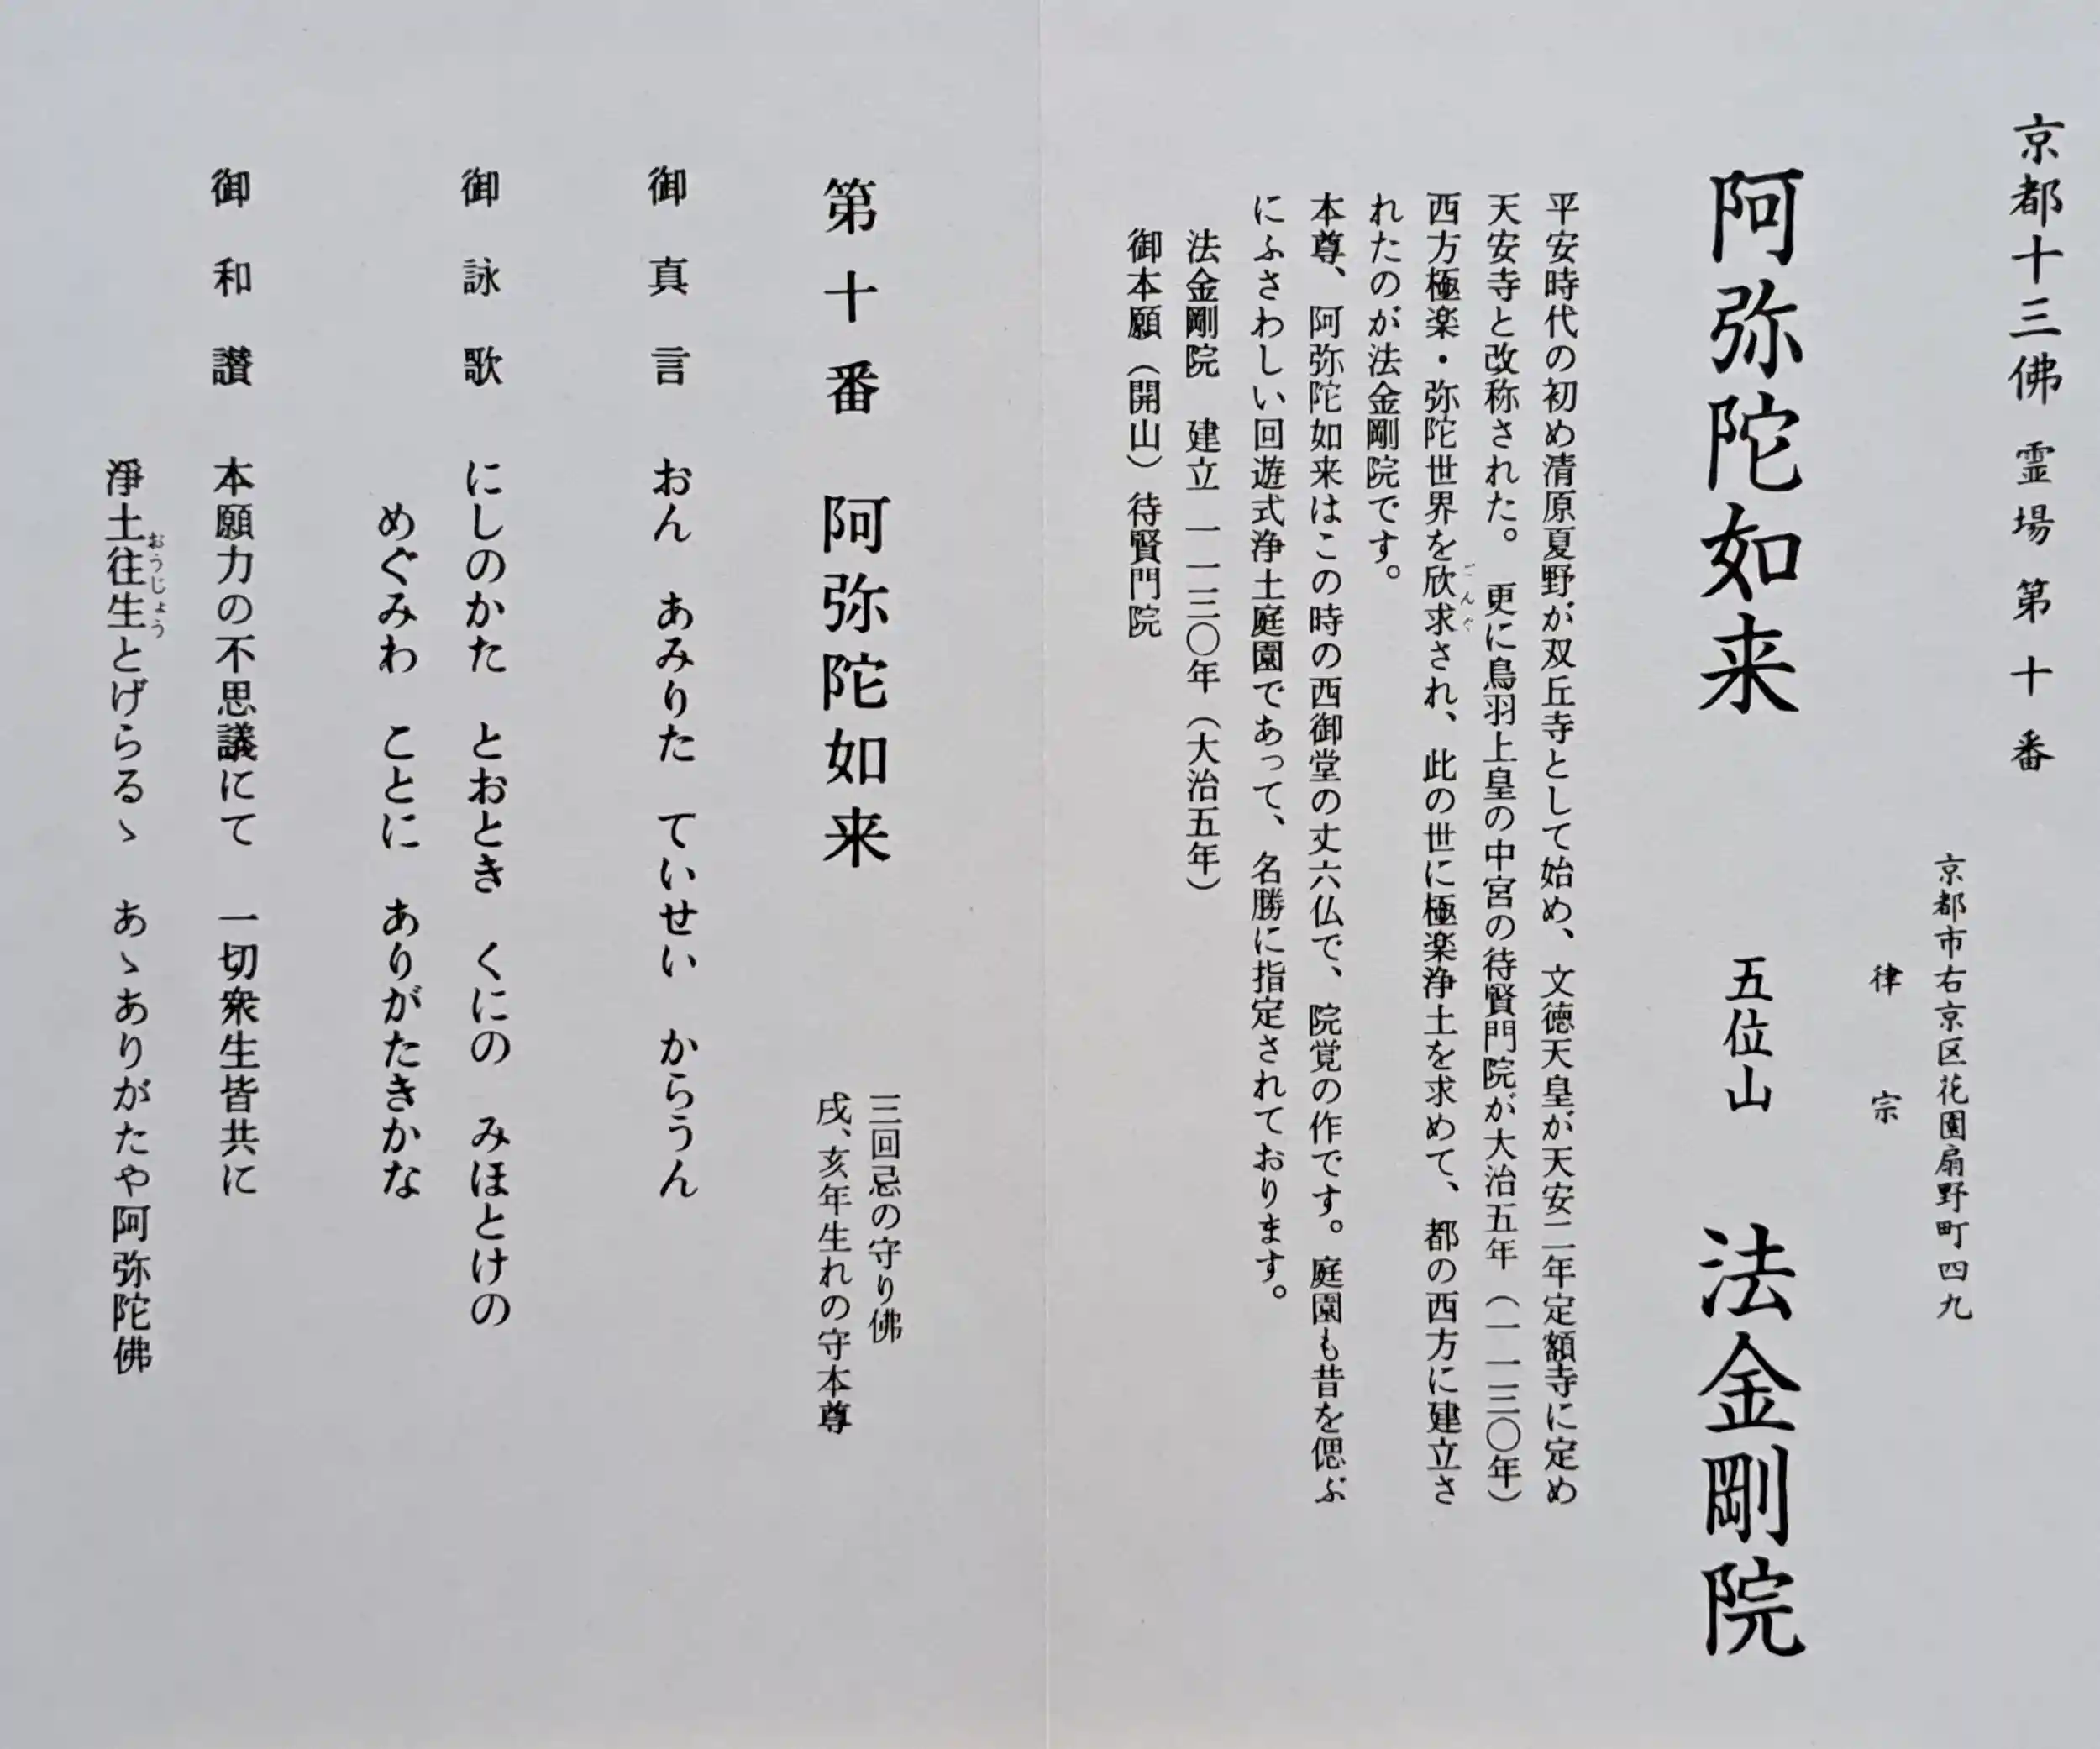 京都十三佛 霊場 第十番
京都市右京区花園扇野町四九
律宗
阿弥陀如来 五位山 法金剛院
平安時代の初め清原夏野が双丘寺として始め、文徳天皇が天安二年定額寺に定め
天安寺と改称された。更に鳥羽上皇の中宮の待賢門院が大治五年（一一三〇年）
西方極楽・弥陀世界を欣求され、此の世に極楽浄土を求めて、都の西方に建立さ
ごんぐ
れたのが法金剛院です。
本尊、阿弥陀如来はこの時の西御堂の丈六仏で、院覚の作です。庭園も昔を偲ぶ
にふさわしい回遊式浄土庭園であって、名勝に指定されております。
法金剛院 建立 一一三〇年（大治五年）
御本願（開山）待賢門院
第十番 阿弥陀如来
三回忌の守り佛
戌、亥年生れの守本尊
御真言 おん あみりた ていせい からうん
御詠歌 にしのかた とおとき くにの みほとけの
めぐみわ ことに ありがたきかな
御和讃 本願力の不思議にて 一切衆生皆共に
淨土往生とげらるゝ あゝありがたや阿弥陀佛
おうじょう